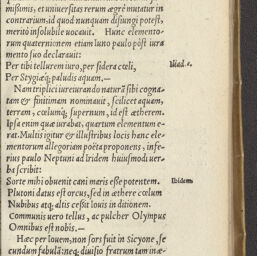 misſimis, et uniuerſitas rerum ægrè mutatur in
contrarium, id quod nunquam diſiungi poteſt,
meritò inſolubile uocauit. Hunc elemento-
rum quaternionem etiam Iuno paulo pòſt iura
mento ſuo declarauit:
Per tibi tellurem iuro, per ſidera cœli, Iliad. ε.
Per Stygiæq́; paludis aquam.—
Nam triplici iureiurando naturã ſibi cogna-
tam & finitimam nominauit, ſcilicet aquam,
terram, cœlumq́; ſupernum, id eſt ætherem.
Ipſa enim quæ iurabat, quartum elementum e-
rat. Multis igitur & illuſtribus locis hanc ele-
mentorum allegoriam poëta proponens, infe-
rius paulo Neptuni ad Iridem huiuſmodi uer-
ba ſcribit:
Sorte mihi obuenit cani maris eſſe potentem. Ibidem
Plutoni datus eſt orcus, ſed in æthere cœlum
Nubibus atq; altis ceſſit Iouis in ditionem.
Communis uero tellus, ac pulcher Olympus
Omnibus eſt nobis.—
Hæc per Iouem, non ſors fuit in Sicyone, ſe
cundum fabulã: neq; diuiſio fratrum tam inæ-